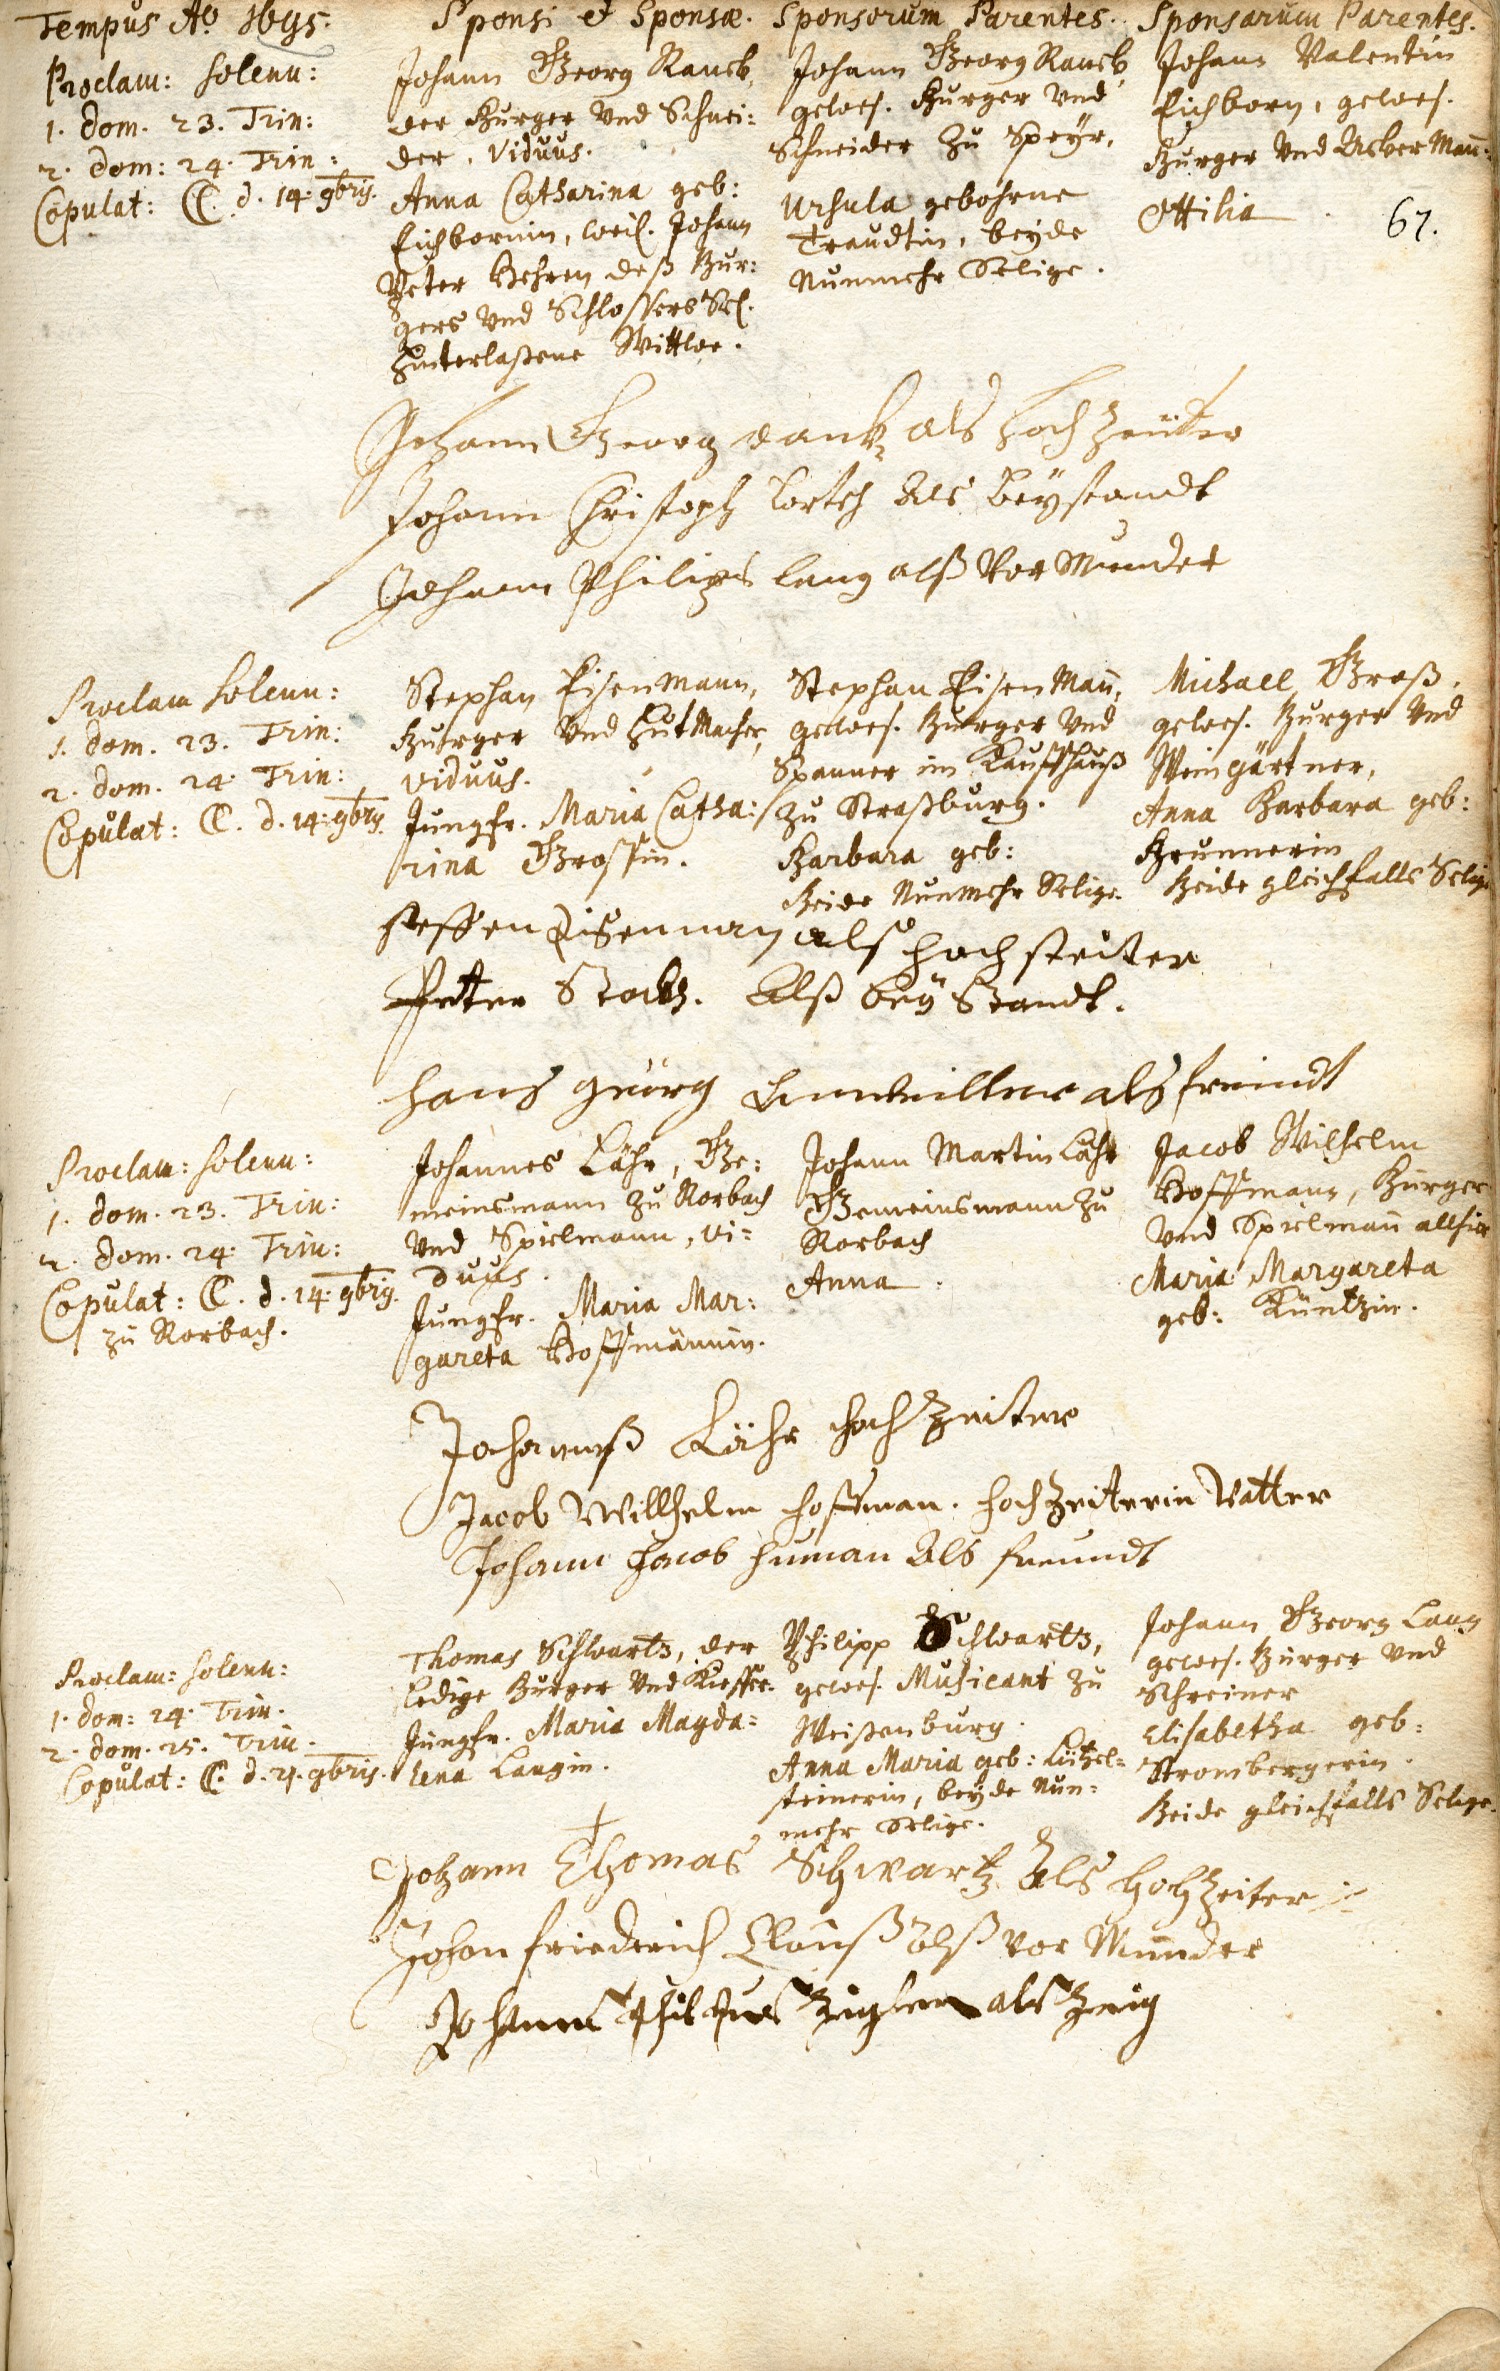 Tempus Aō. 1695.
Sponsi et Sponsæ.
Sponsorum Parentes.
Sponsarum Parentes.
67.
Proclam: solenn:
1. dom. 23. Trin:
2. dom: 24. Trin:
Copulat: d. 14. 9bris.
Johann Georg Rauch,
der Burger und Schnei=
der, viduus.
Anna Catharina geb:
Eichbornin, weil. Johann
Peter deß Bur=
gers und Schlossers Sel.
hinterlaßene Wittwe.
Johann Georg Rauch
gewes. Burger und
Schneider zu Speyr,
Ursula gebohrne
Traudtin, beyde
Nunmehr Selige.
Johann Valentin
Eichborn, gewes.
Burger und AckerMañ.
Ottilia
Johann Georg als hoch zeiter
Johann Christoph als beystandt
Johann Philips lang alß Vor Munder
Proclam solenn:
1. dom. 23. Trin:
2. dom. 24. Trin:
Copulat: d. 14. 9bris.
Stephan Eisenmann,
Burger und HutMacher,
viduus.
Jungfr. Maria Catha=
rina Grossin.
Stephan EisenMañ,
gewes. Burger und
Spanner im Kauffhauß
zu Straßburg.
Barbara geb:
Beide Nunmehr Selige.
Michael Groß,
gewes. Burger und
Weingärtner,
Anna Barbara geb:
Brunnerin
Beide gleichfalls Selige
steffen Eisenman als hoch zeiter
Petter Alß bey Standt.
hans georg als freindt
Proclam: solenn:
1. dom. 23. Trin:
2. dom. 24. Trin:
Copulat: d. 14. 9bris.
zu Rorbach.
Johannes Lähr, Ge=
meinsmann zu Rorbach
und Spielmann, vi=
duus.
Jungfr. Maria Mar=
gareta Hoffmännin.
Johann Martin Lähr
Gemeinsmann zu
Rorbach
Anna
Jacob Wilhelm
Hoffmann, Burger
und Spielmañ allhier
Maria Margareta
geb: Küntzin.
Johannes Lähr hoch zeiter
Jacob Willhelm hoffman. hoch zeiterin Vatter
Johann Jacob human Als freundt
Proclam: solenn:
1. dom: 24. Trin.
2. dom. 25. Trin.
Copulat: d. 21. 9bris.
Thomas Schwartz, der
ledige Burger und Kieffer.
Jungfr. Maria Magda=
lena Langin.
Philipp Schwartz,
gewes. Musicant zu
Weißenburg.
Anna Maria geb: Lützel=
steinerin, beyde Nun=
mehr Selige.
Johann Georg Lang
gewes. Burger und
Schreiner
Elisabetha geb:
Strombergerin.
Beide gleichfalls Selige.
Johann Thomas Schwartz Als hochzeiter
Johan friederich Clauß alß vor Munder
Johann Zigler als Zeüg